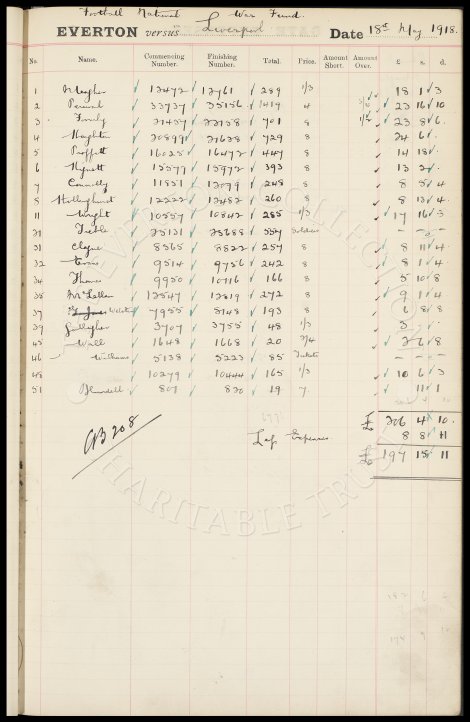 Football National War Fund.
EVERTON versus Liverpool Date 18th May 1918.
No. Name. Commencing Number. Finishing Number. Total. Price. Amount Short. Amount Over. £ s. d.
1 Meagher 13472 13761 289 1/3 18 1 3
2 Percival 33737 35156 1419 4 23 16 10
3 701 8 23 8 6
4 Houghton 20899 21628 729 8 24 6
5 Proffitt 16025 16472 447 8 14 18
6 15579 15972 393 8 13 2
7 Connolly 11831 12079 248 8 8 5 4
8 Hollinghurst 12222 12482 260 8 8 13 4
11 Wright 10557 10842 285 1/3 17 16 3
21 Treble 25131 25688 557 Soldiers – – –
31 Clague 8565 8822 257 8 8 11 4
32 Evans 9514 9756 242 8 8 1 4
34 Thomas 9950 10116 166 8 5 10 8
35 McLellan 13547 13819 272 8 9 1 4
37 7955 8148 193 8 6 8 8
39 Gallagher 3707 3755 48 1/3 3
45 Wall 1648 1668 20 2 6 8
46 Williams 5138 5223 85 Tickets – – –
48 10279 10444 165 1/3 10 6 3
51 Blundell 801 820 19 7 11 1
£ 206 4 10
Less Expenses 8 8 11
£ 197 15 11
CB 208
EVERTON COLLECTION
CHARITABLE TRUST